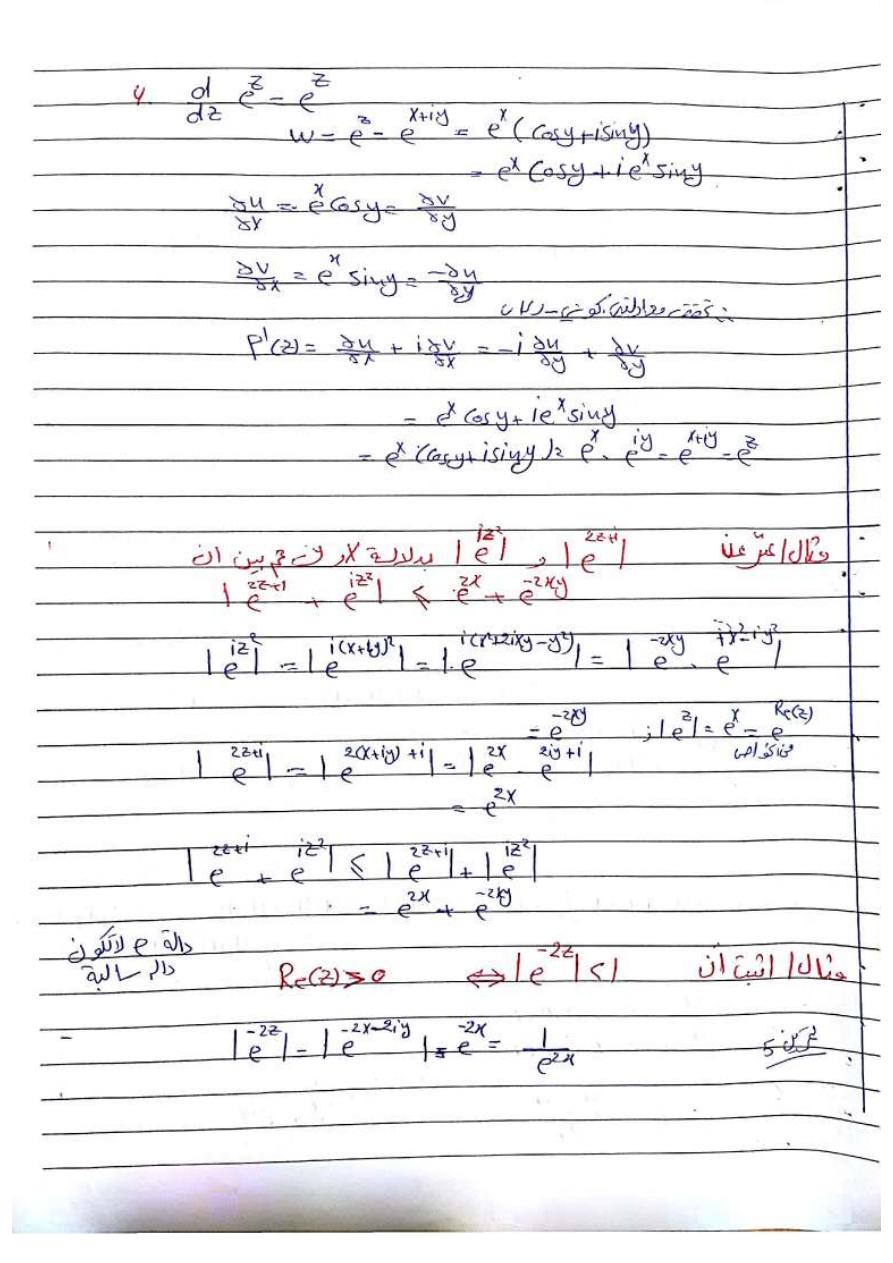 4. d/dz e^z = e^z
w = e^z = e^{x+iy} = e^x (Cosy + i siny)
= e^x Cosy + i e^x siny
∂u/∂x = e^x Cosy = ∂v/∂y
∂v/∂x = e^x siny = -∂u/∂y
∴ تحققت معادلتي كوشي - ريمان
f'(z) = ∂u/∂x + i ∂v/∂x = -i ∂u/∂y + ∂v/∂y
= e^x Cosy + i e^x siny
= e^x (Cosy + i siny) = e^x . e^{iy} = e^{x+iy} = e^z
مثال / عبّر عن |e^{2z+i}| و |e^{iz²}| بدلالة x و y ثم بين ان
|e^{2z+i} + e^{iz²}| ≤ e^{2x} + e^{-2xy}
|e^{iz²}| = |e^{i(x+iy)²}| = |e^{i(x²+2ixy-y²)}| = |e^{-2xy} . e^{ix²-iy²}|
= e^{-2xy} ; |e^z| = e^x = e^{Re(z)}
من خواص
|e^{2z+i}| = |e^{2(x+iy)+i}| = |e^{2x} . e^{2iy+i}|
= e^{2x}
|e^{2z+i} + e^{iz²}| ≤ |e^{2z+i}| + |e^{iz²}|
= e^{2x} + e^{-2xy}
دالة e لاتكون
دالة سالبة
مثال / اثبت أن |e^{-2z}| < 1 ⇔ Re(z) > 0
تمرين 5
|e^{-2z}| = |e^{-2x-2iy}| = e^{-2x} = 1/e^{2x}